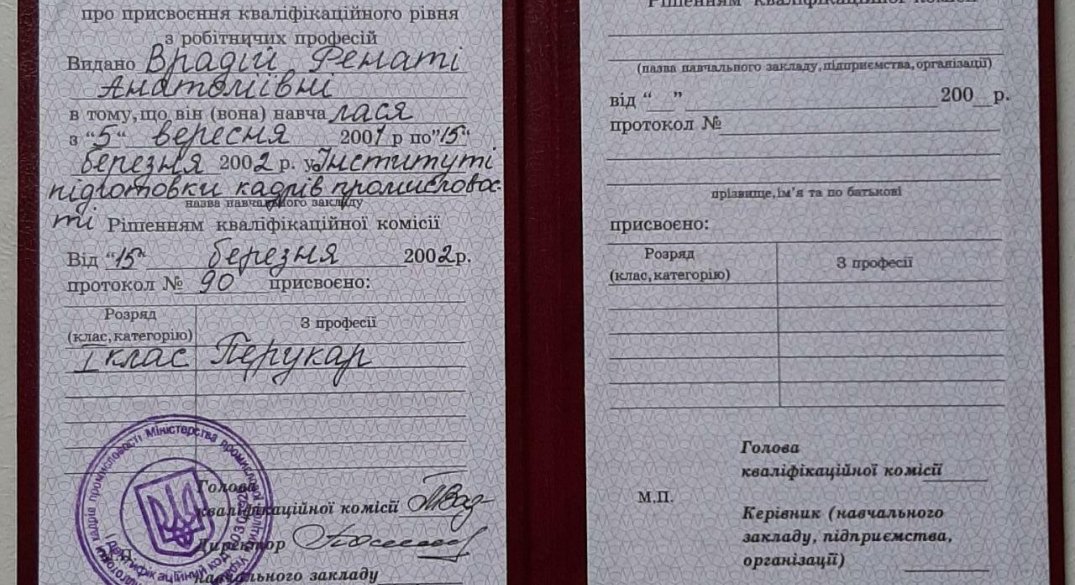 про присвоєння кваліфікаційного рівня
з робітничих професій
Видано Врадій Ренаті
Анатоліївні
в тому, що він (вона) навча лася
з “5“ вересня 2001 р по”15“
березня 2002 р. у Інституті
підготовки кадрів промисловос-
назва навчального закладу
ті Рішенням кваліфікаційної комісії
Від “15“ березня 2002р.
протокол № 90 присвоєно:
Розряд
(клас, категорію)
З професії
I клас Перукар
Голова
кваліфікаційної комісії
Директор
навчального закладу
кадрів промисловості Міністерства промислової
Ідентифікаційний код
Рішенням кваліфікаційної комісії
(назва навчального закладу, підприємства, організації)
від “__” 200__р.
протокол №
прізвище, ім’я та по батькові
присвоєно:
Розряд
(клас, категорію)
З професії
Голова
кваліфікаційної комісії
М.П.
Керівник (навчального
закладу, підприємства,
організації)